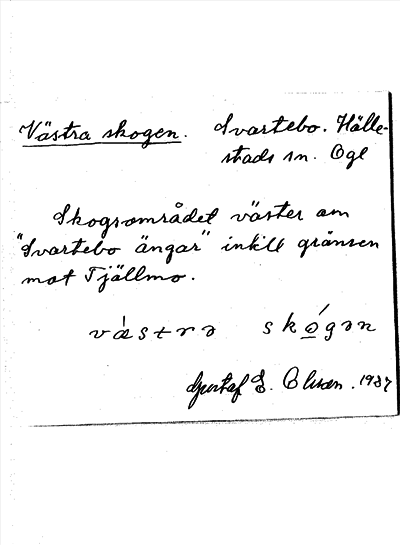 Västra skogen. Svartebo. Hälle-
stads sn. Ögl
Skogsområdet väster om
"Svartebo ängar" inkll gränsen
mot Tjällmo.
væ̀strə skó̲gən
Gustaf E. Olsson. 1937